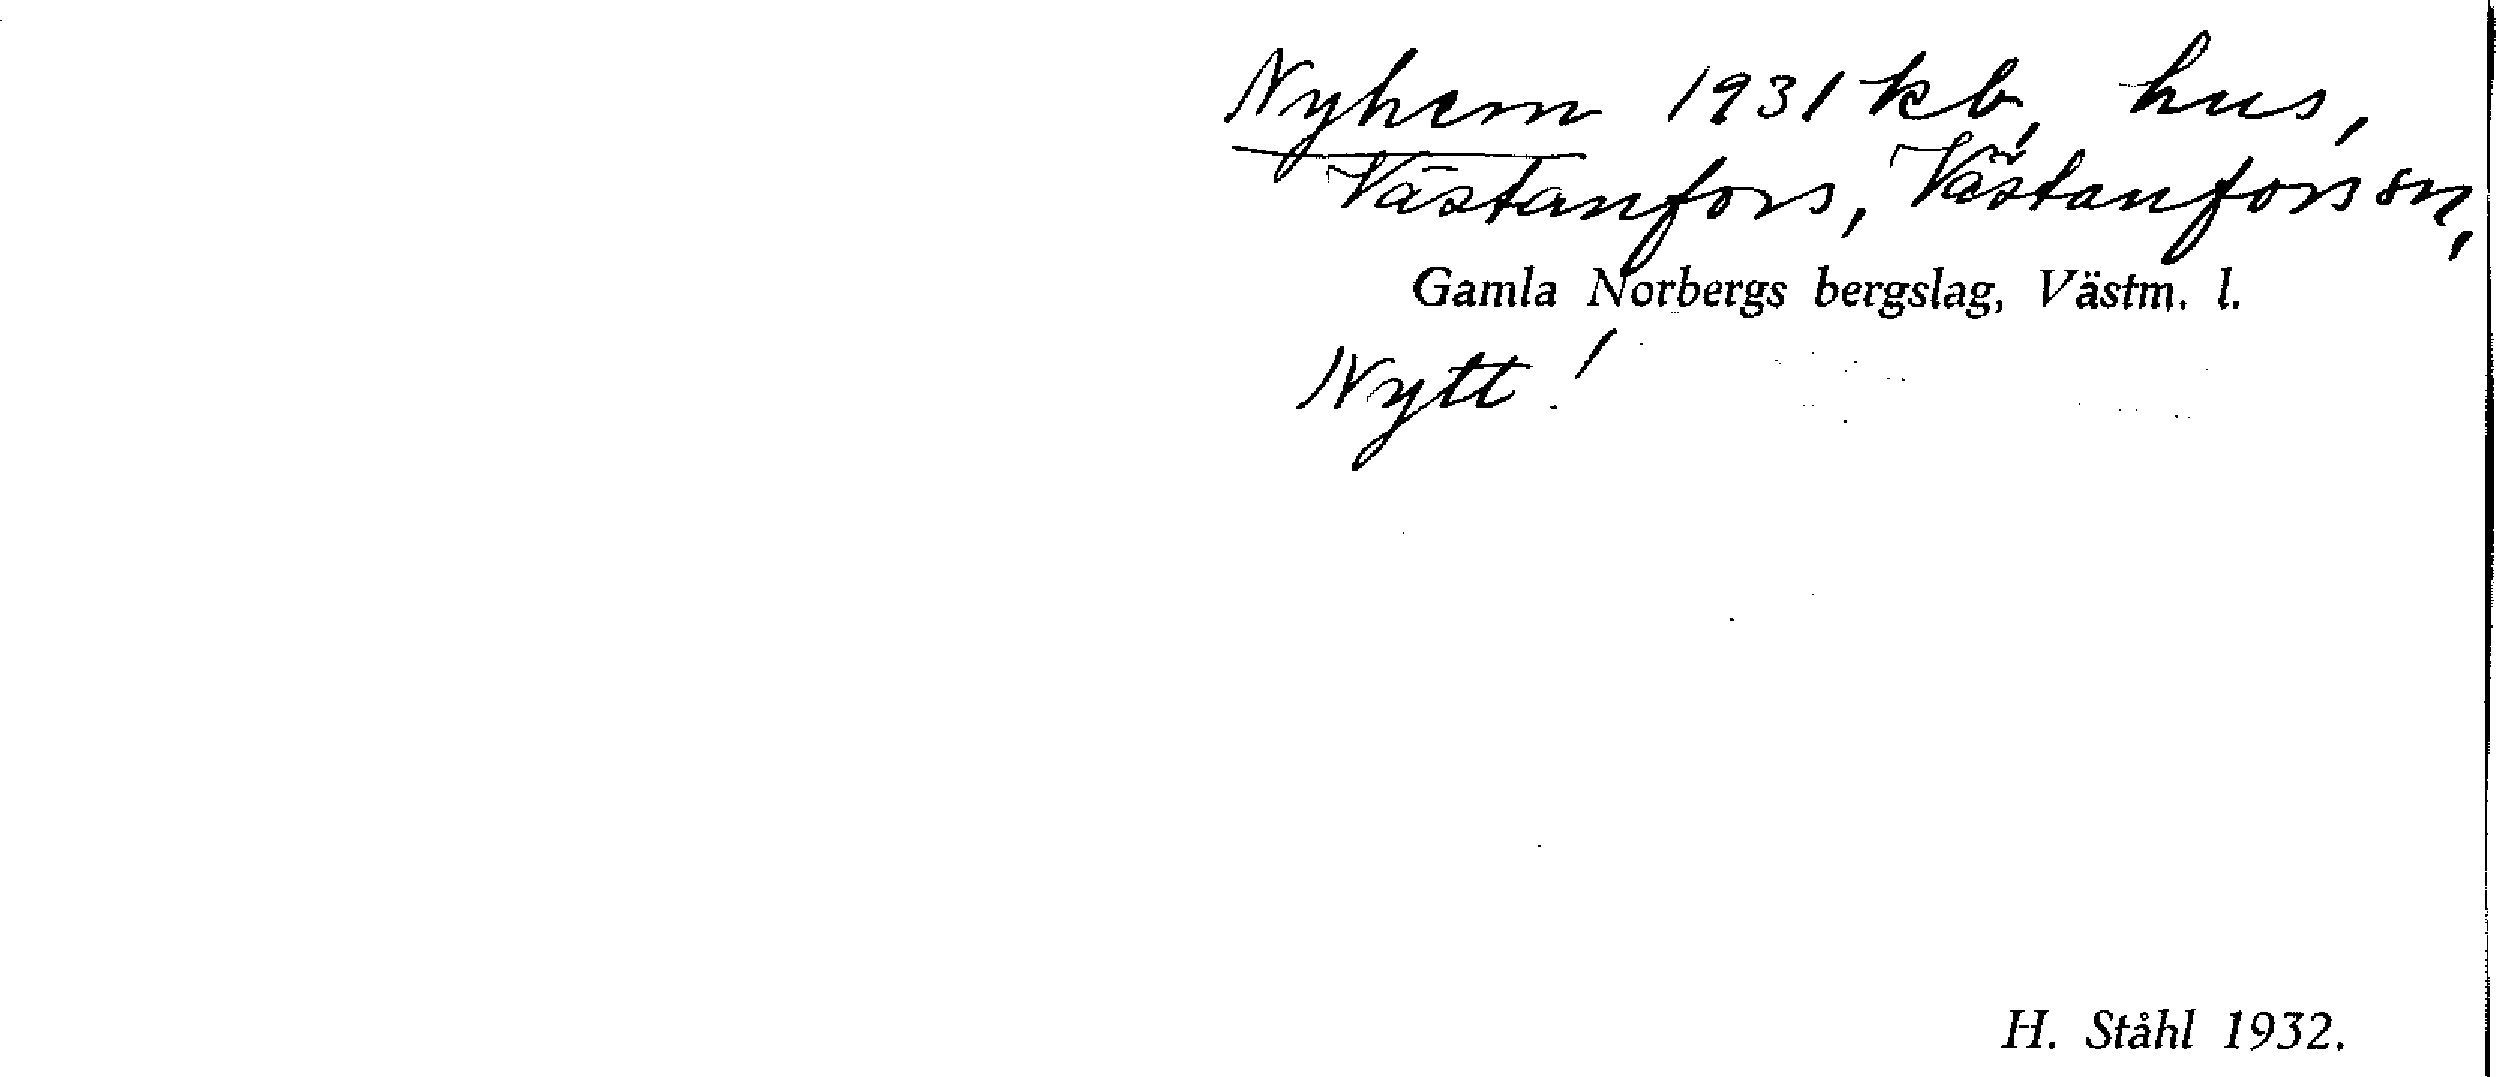 Nyhem 1931 kb, hus,
Västanfors, Västanfors sn,
Gamla Norbergs bergslag, Västm. l.
Nytt!
H. Ståhl 1932.